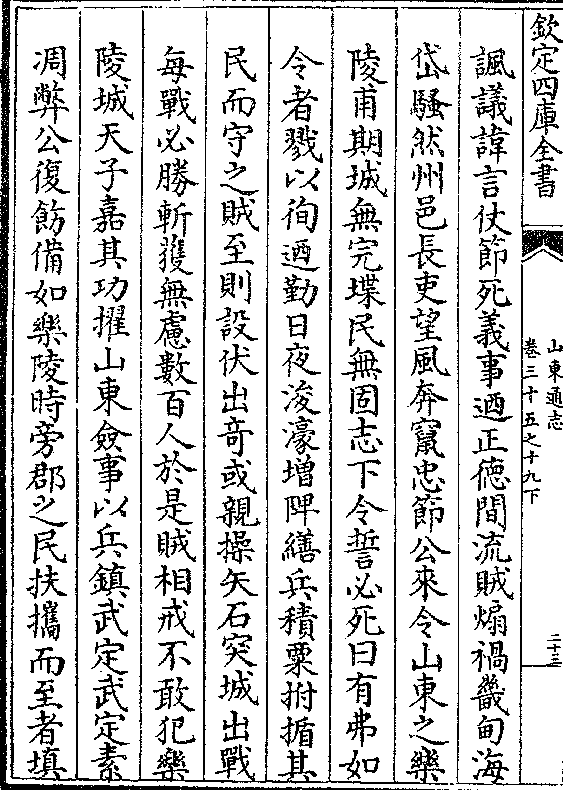 欽定四庫全書
山東通志
卷三十五之十九下
二十三
諷議諱言仗節死義事迺正德間流賊煽禍畿甸海
岱騷然州邑長吏望風奔竄忠節公來令山東之樂
陵甫期城無完堞民無固志下令誓必死曰有弗如
令者戮以徇迺勤日夜浚濠增陴繕兵積粟拊循其
民而守之賊至則設伏出竒或親操矢石突城出戰
每戰必勝斬獲無慮數百人於是賊相戒不敢犯樂
陵城天子嘉其功擢山東僉事以兵鎮武定武定素
凋弊公復飭備如樂陵時旁郡之民扶攜而至者填